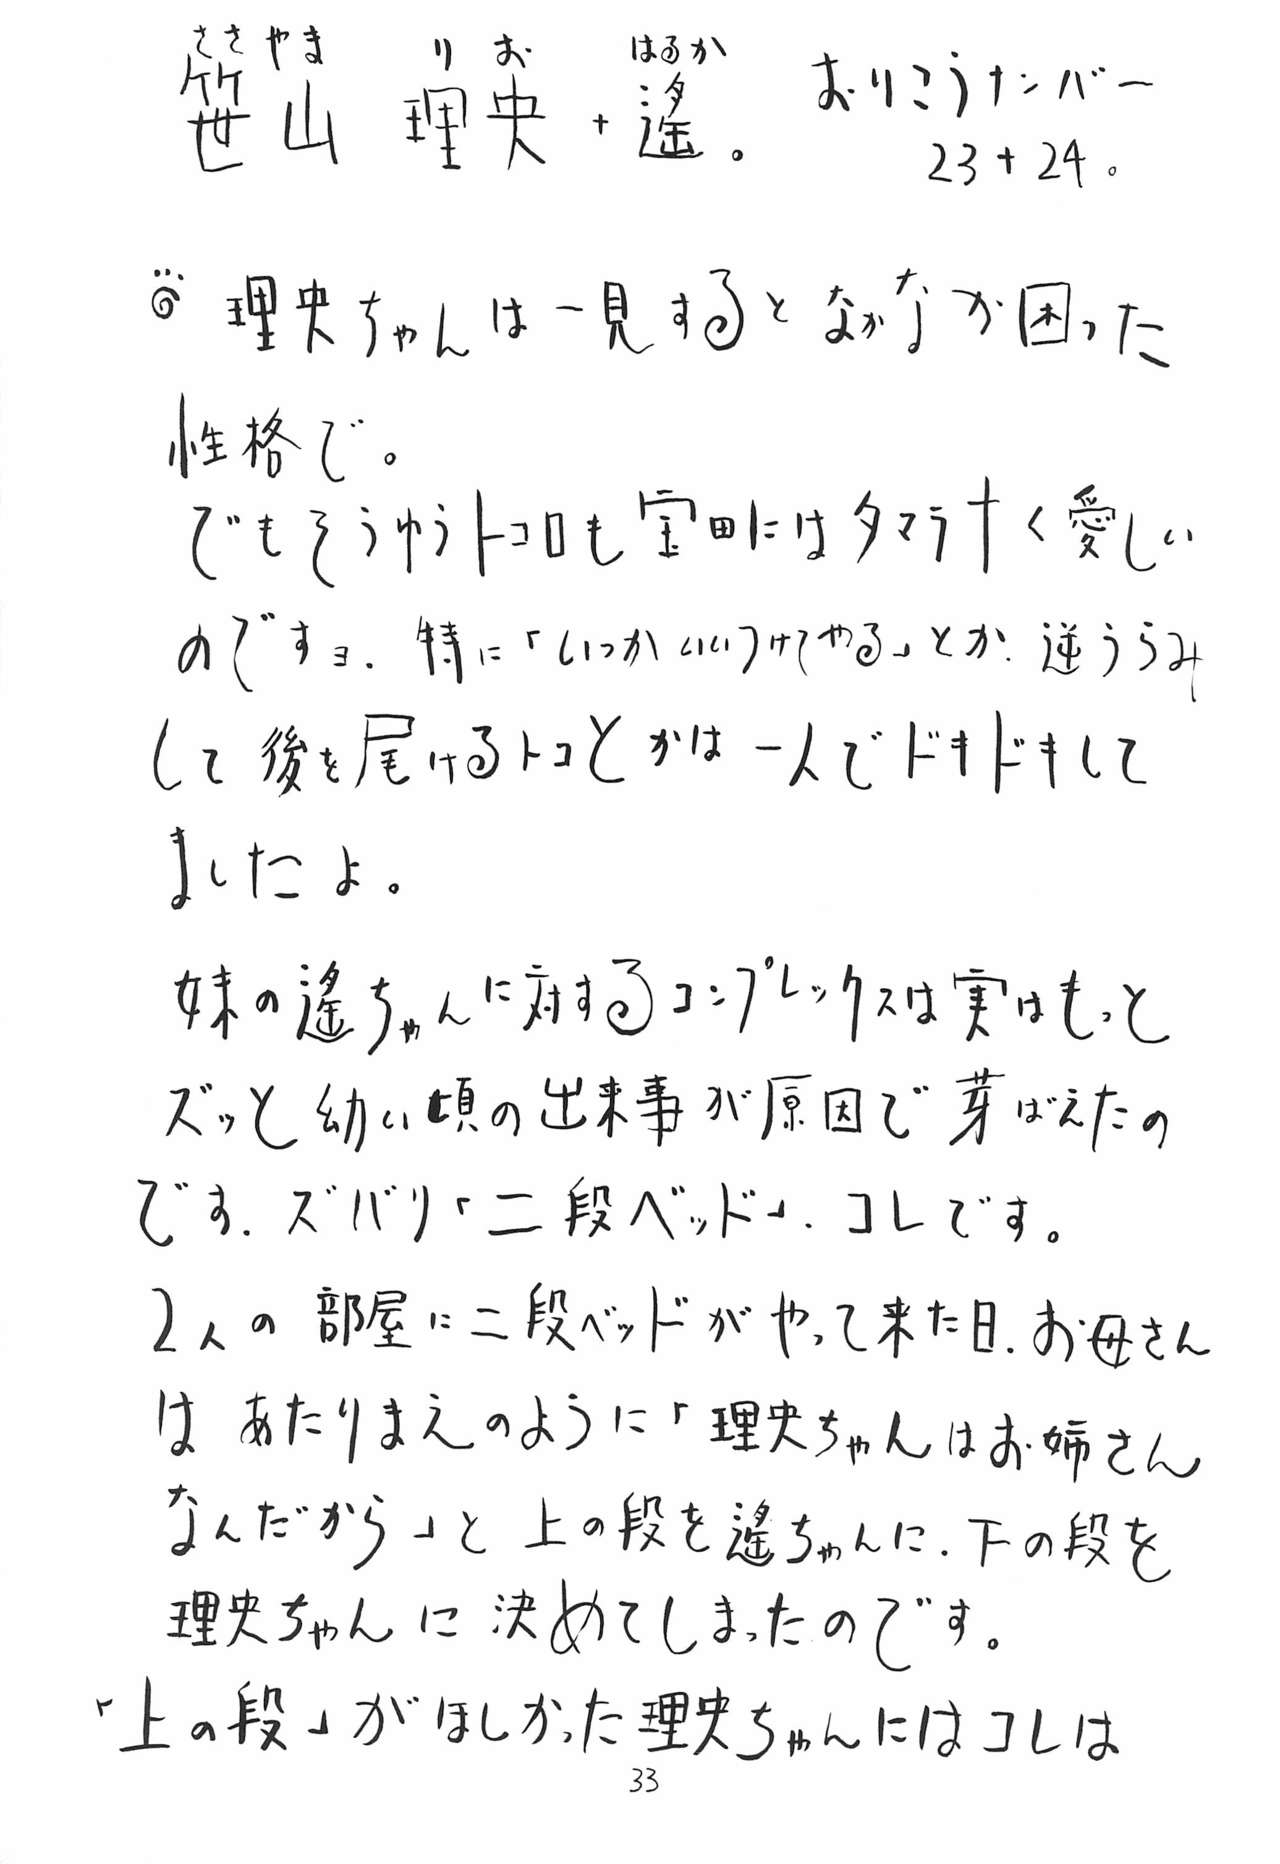 ささやま りお はるか
笹山 理央+遙。 おりこうナンバー
23+24。
理央ちゃんは一見するとなかなか困った
性格で。
でもそうゆうトコロも宝田にはタマラナく愛しい
のですョ.特に「いつかいいつけてやる」とか.逆うらみ
して後を尾けるトコとかは一人でドキドキして
ましたよ。
妹の遙ちゃんに対するコンプレックスは実はもっと
ズッと幼い頃の出来事が原因で芽ばえたの
です.ズバリ「二段ベッド」.コレです。
2人の部屋に二段ベッドがやって来た日.お母さん
はあたりまえのように「理央ちゃんはお姉さん
なんだから」と上の段を遙ちゃんに.下の段を
理央ちゃんに決めてしまったのです。
「上の段」がほしかった理央ちゃんにはコレは
33